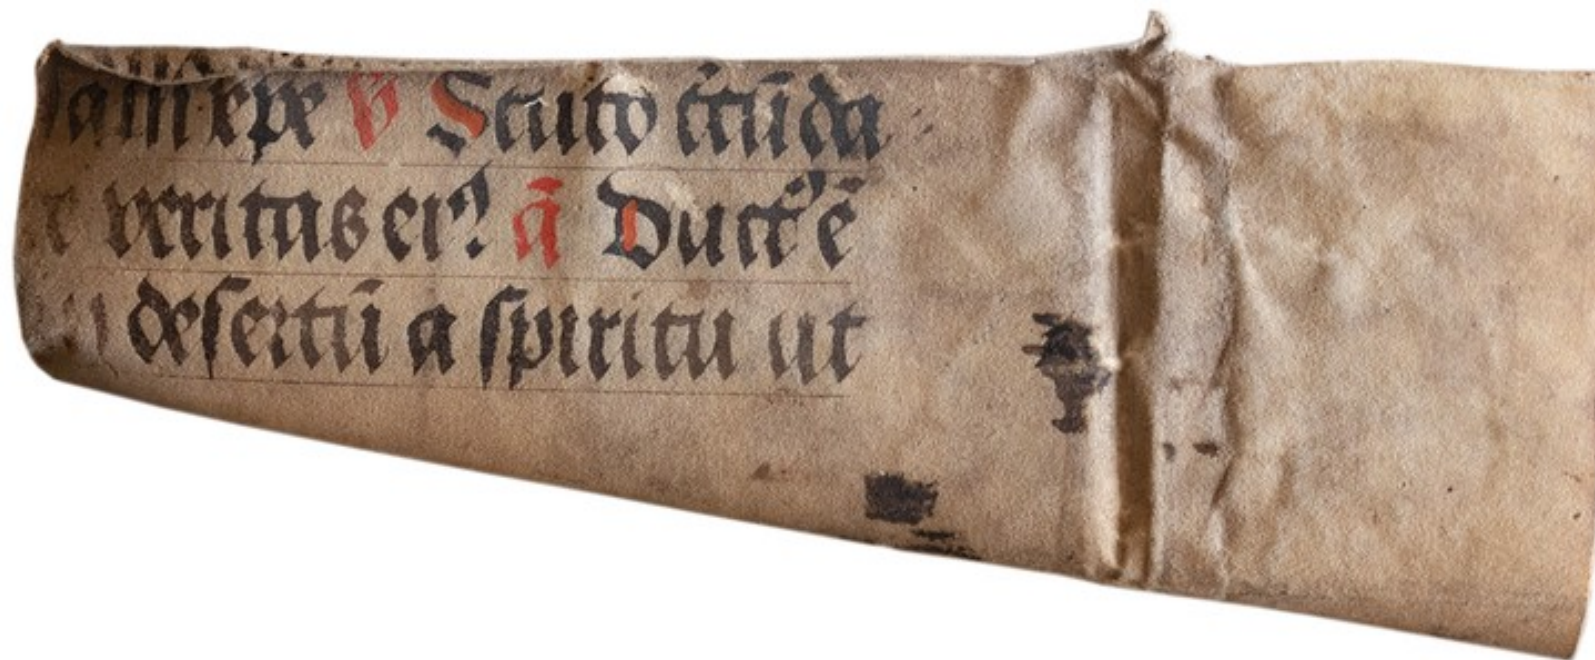 epe ℣ Scuto cͥcūda
t veritas eiꝰ? ā Duct᷒ ē
desertū a spiritu ut